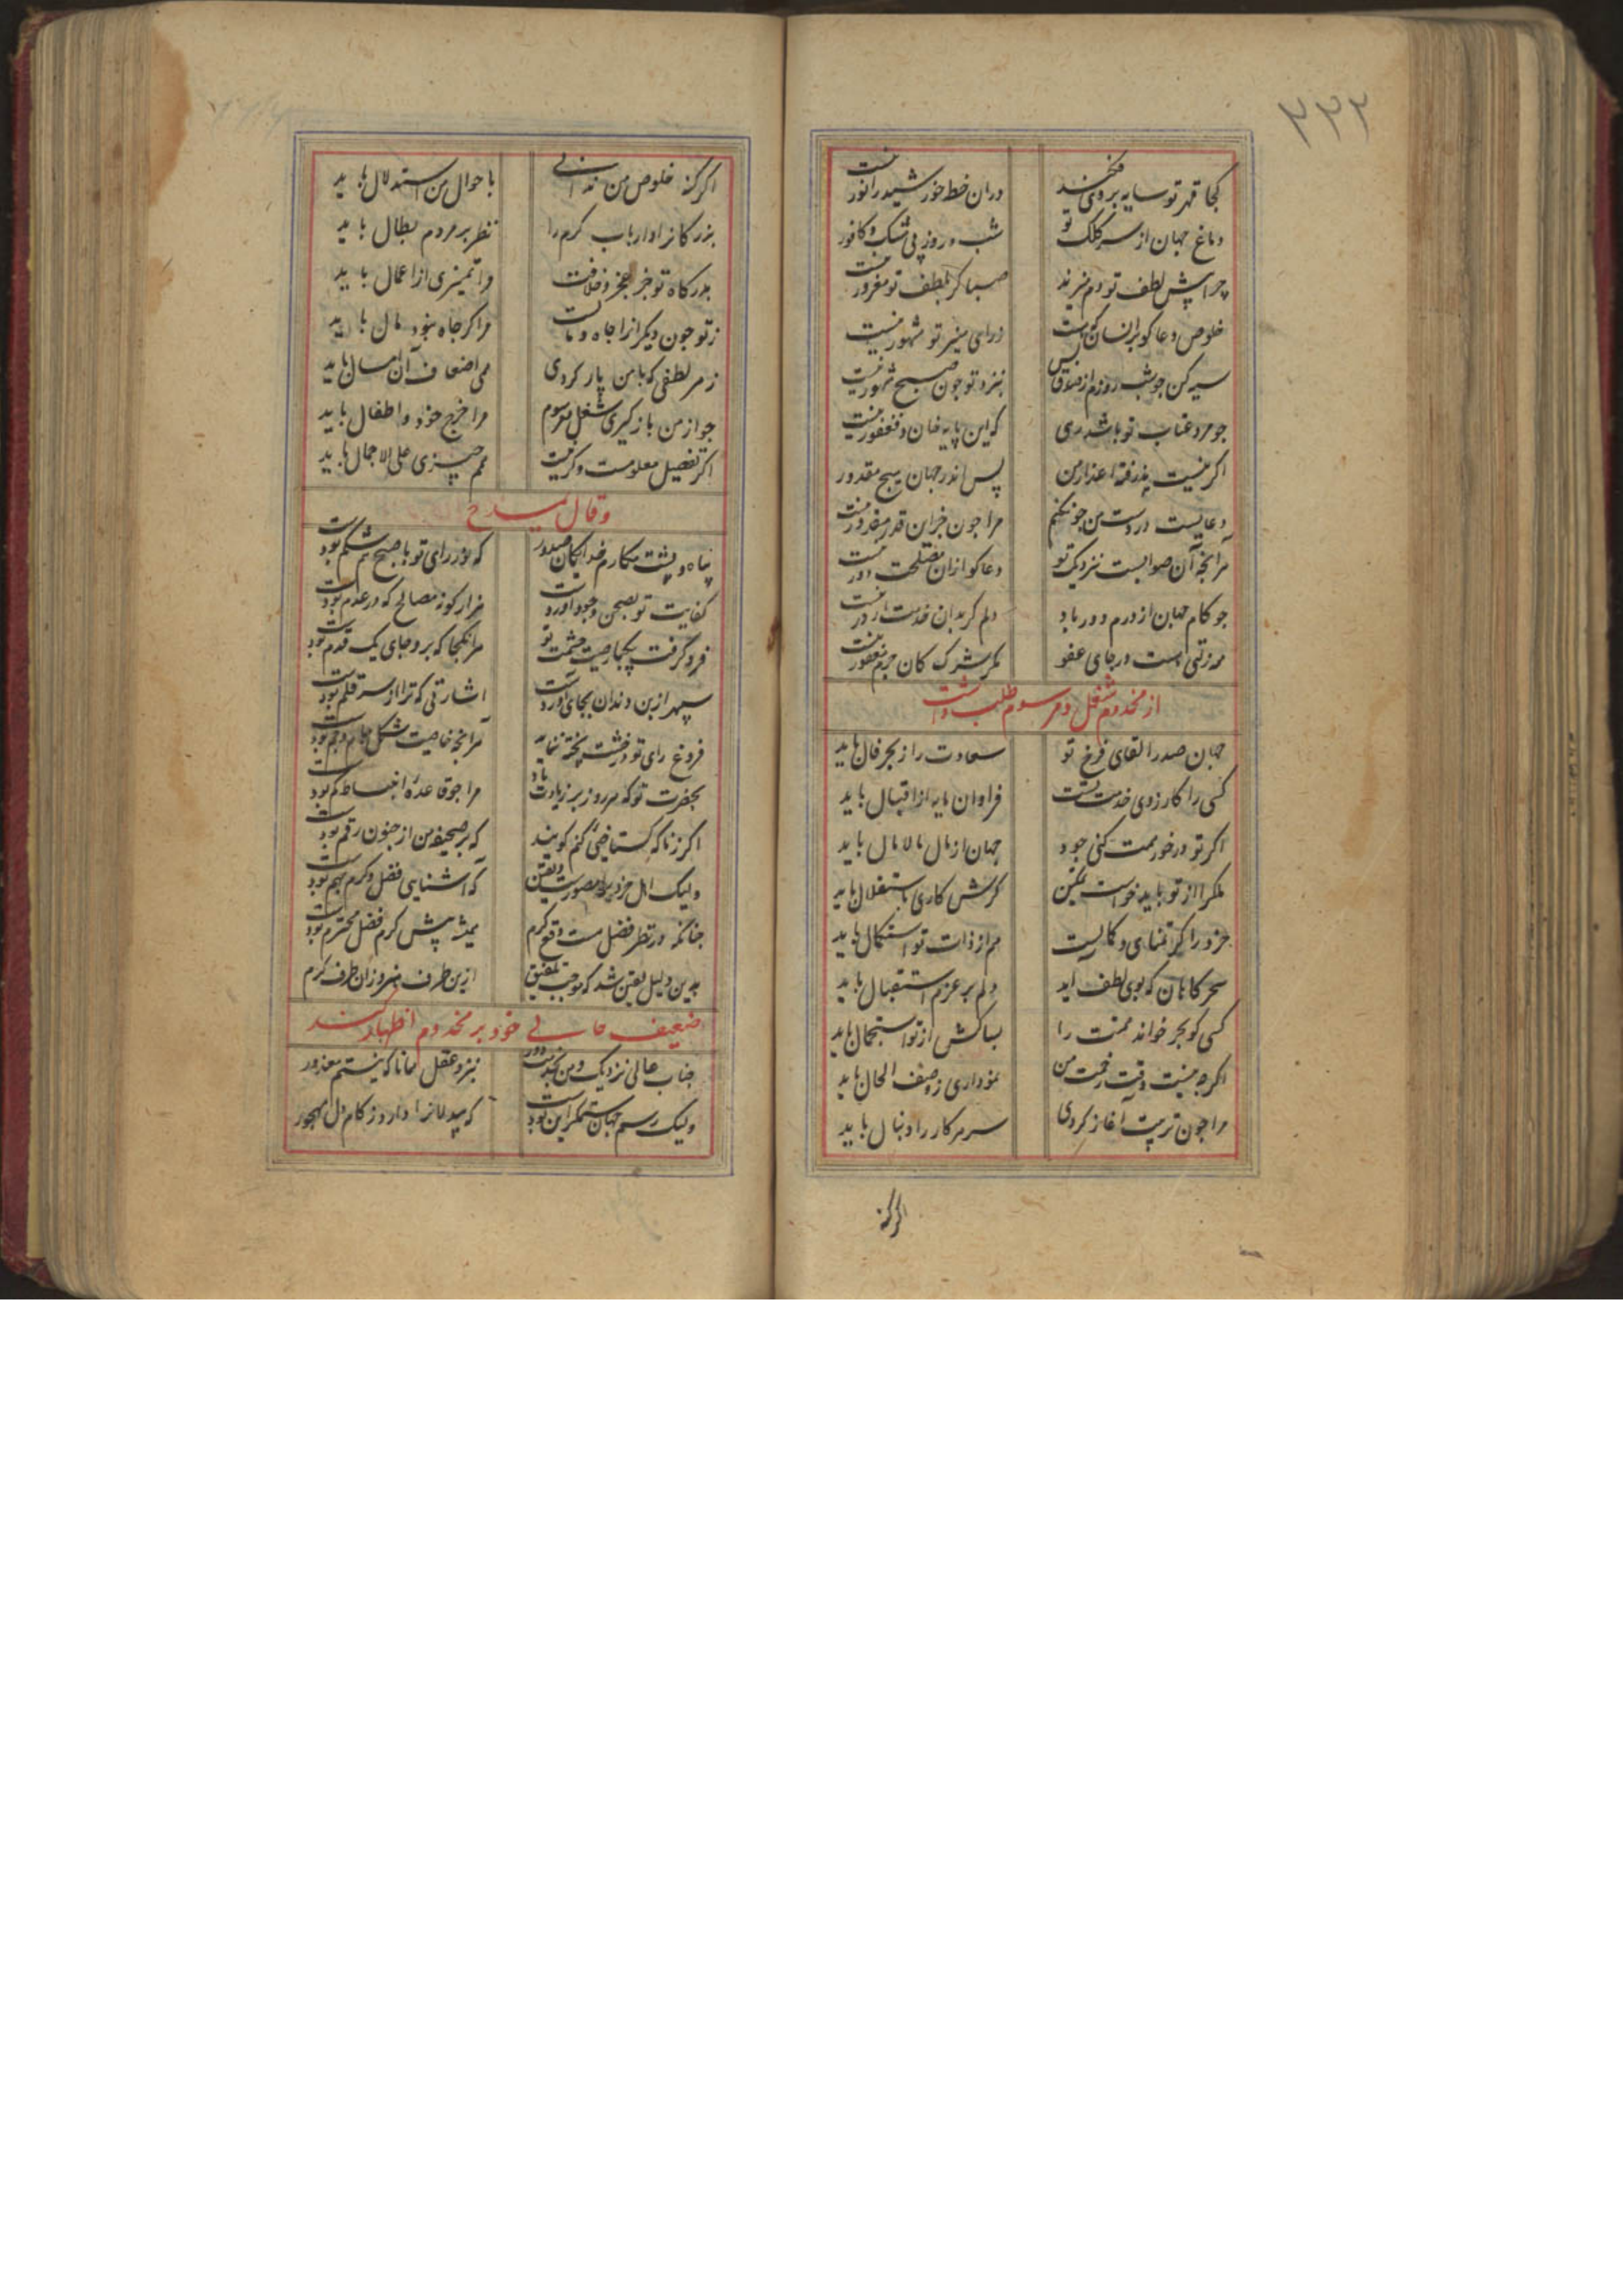 ۳۳۲
کجا قهر تو سایه بروی فکند
در ان خط خورشید را نور نیست
دماغ جهان از سر کلک تو
شب و روز بی مشک و کافور نیست
چرا پیش لطف تو دم میزند
صبا کر بلطف تو مغرور نیست
خلوص دعا کو بر انسان که هست
ز رای منیر تو مشهور نیست
سیه کن جو شب روزم از صدق پس
بنزد تو جون صبح مشهور نیست
جو مرد عتاب تو باشد رهی
که این پایه خان و فغفور نیست
اکر نیست پذرفته اعذار من
پس اندر جهان هیچ مقدور نیست
دعاییست در دست من جون کنم
مرا جون جزان قدر مقدور نیست
هرآنجه آن صوابست نزدیک تو
دعا کو ازان مصلحت دور نیست
جو کام جهان از درم دور باد
دلم کر بدان خدمت
همه زلتی هست در جای عفو
مکر شرک کان جرم مغفور نیست
از مخدوم شغل و مرسوم طلب داشت
جهان صدرا لقای فرخ تو
سعادت را ز بهر فال باید
کسی را کارزوی خدمت تست
فراوان مایه از اقبال باید
اکر تو درخور همت کنی جود
جهان از مال مالامال باید
فلک را از تو باید خواست تمکین
کرش کاری باستقلال باید
خرد را کر تمنای کمالیست
هم از ذات تو استکمال باید
سحرکاهان که بوی لطف اید
دلم بر عزم استقبال باید
کسی کو بحر خواند همتت را
بسا کش از تو استجمال باید
اکرجه نیست وقت زحمت من
نموداری ز وصف الحال باید
مرا جون تربیت اغاز کردی
سر هر کار را دنبال باید
اکر کنه
اکر کنه خلوص من ندانی
باحوال من استدلال باید
بزرکانرا و ارباب کرم را
نظر بر مردم بطال باید
بدرکاه تو جز عجز و خلافت
ورا تمییزی از اعمال باید
ز تو جون دیکرانرا جاه و مالست
مرا کر جاه نبود مال باید
ز هر لطفی که با من پار کردی
همی اضعاف آن امسال باید
جو از من باز کیری شغل و مرسوم
مرا خرج خود و اطفال باید
اکر تفصیل معلومست و کر نیست
هم چیزی علی الاجمال باید
وقال یمدح
پناه و پشت مکارم خدایکان صدور
که نور رای تو با صبح هم شکم بودست
کفایت تو بصحن وجود آوردست
هزار کونه مصالح که در عدم بودست
فرو کرفت بیکبار صیت حشمت تو
هر انکجا که برو جای یک قدم بودست
سپهر از بن دندان بجای اوردست
اشارتی که ترا از سر قلم بودست
فروغ رای تو در خشت پخته بنماید
هر انجه خاصیت شکل جام جم بودست
بحضرت تو که هر روز بر زیادت باد
مرا جو قاعدهٔ انبساط کم بودست
اکر زنا که کستاخیی کنم کویند
که بر صحیفه من از جنون رقم بودست
ولیک اهل خرد را مصورست و یقین
که آشنایی فضل و کرم بهم بودست
جنانکه در نظر فضل هست وقع کرم
همیشه پیش کرم فضل محترم بودست
بدین دلیل یقین شد که موجب تلفیق
ازین طرف هنر وزان طرف کرم بودست
ضعیف حالی خود بر مخدوم اظهار کند
جناب عالی نزدیک و من بخدمت دور
بنزد عقل همانا که نیستم معذور
ولیک رسم جهان ستمکر این بودست
که بیدلانرا دارد ز کام دل مهجور